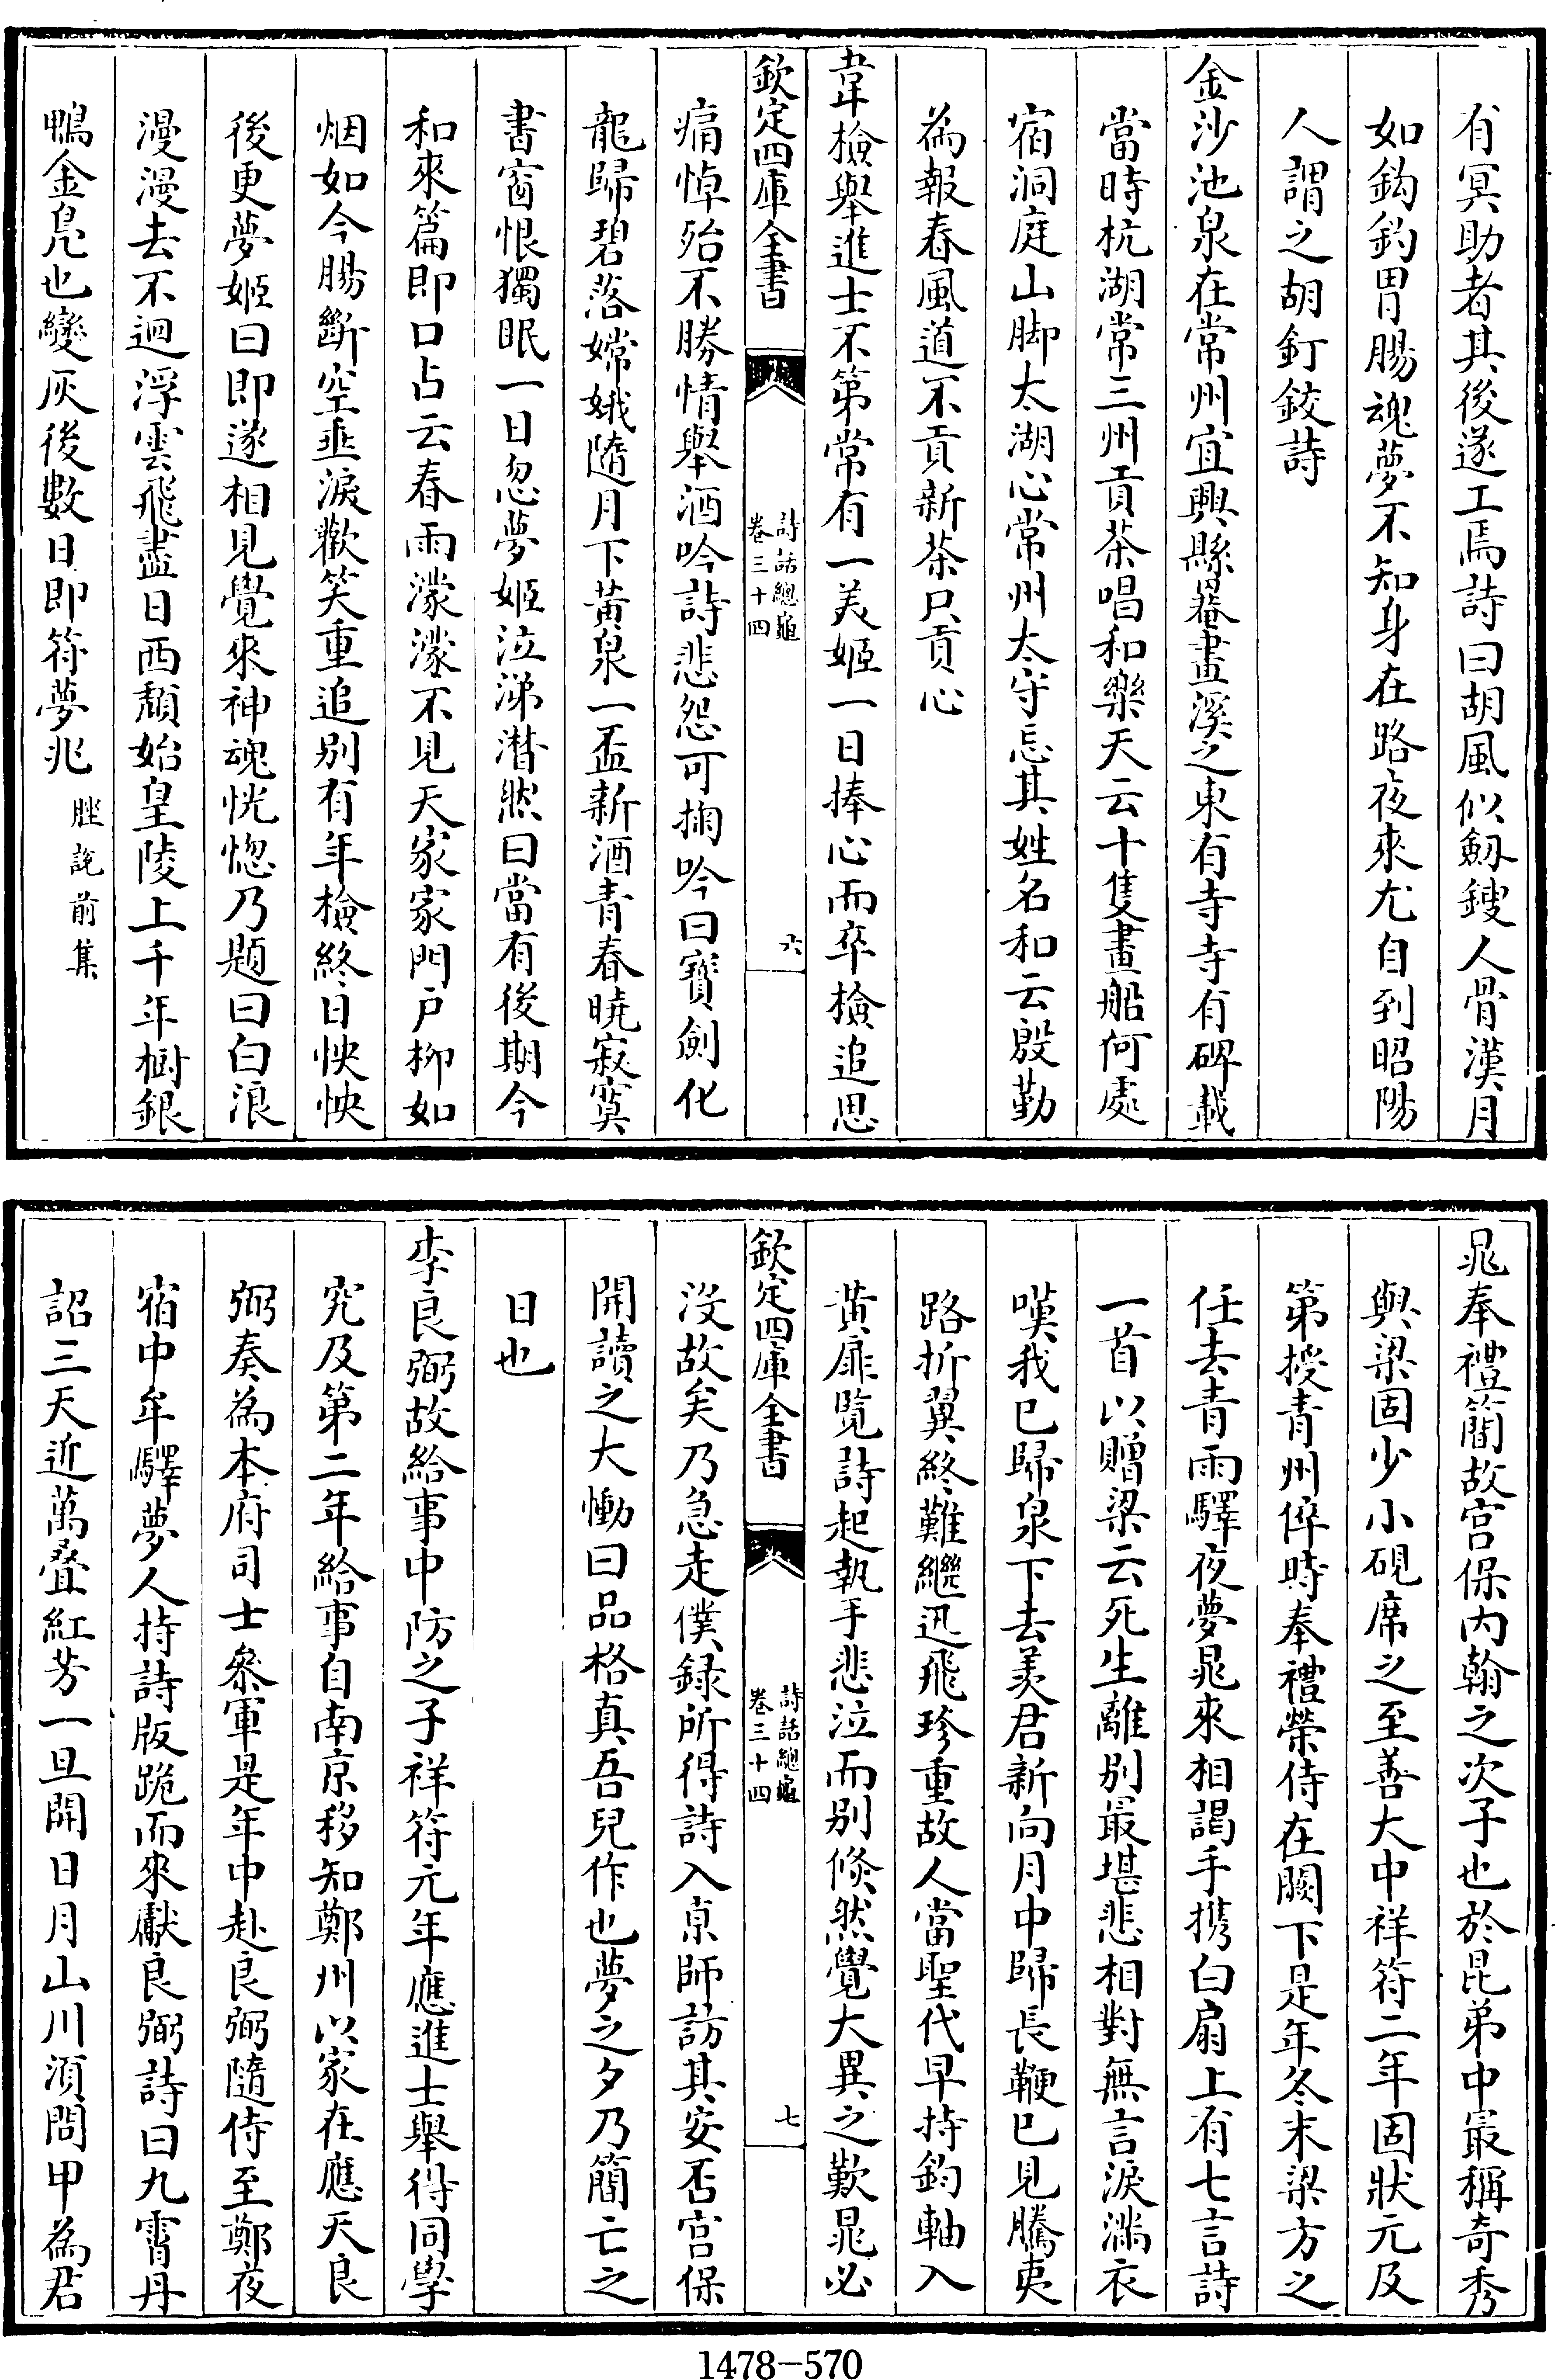 有冥助者其後遂工焉詩曰胡風似劔鎪人骨漢月
如鈎釣胃腸魂夢不知身在路夜來尤自到昭陽
人謂之胡釘鉸詩
金沙池泉在常州宜興縣罨畫溪之東有寺寺有碑載
當時杭湖常三州貢茶唱和樂天云十隻畫船何處
宿洞庭山脚太湖心常州太守忘其姓名和云殷勤
為報春風道不貢新茶只貢心
韋檢舉進士不第常有一美姬一日捧心而卒檢追思
欽定四庫全書
詩話總龜
卷三十四
六
痛悼殆不勝情舉酒吟詩悲怨可掬吟曰寳劍化
龍歸碧落嫦娥隨月下黄泉一盃新酒青春曉寂寞
書窗恨獨眠一日忽夢姬泣涕潸然曰當有後期今
和來篇即口占云春雨濛濛不見天家家門户柳如
烟如今腸斷空垂淚歡笑重追别有年檢終日怏怏
後更夢姬曰即遂相見覺來神魂恍惚乃題曰白浪
漫漫去不迴浮雲飛盡日西頽始皇陵上千年樹銀
鴨金鳬也變灰後數日即符夢兆
脞說前集
晁奉禮簡故宫保内翰之次子也於昆弟中最稱奇秀
與梁固少小硯席之至善大中祥符二年固狀元及
第授青州倅時奉禮榮侍在闕下是年冬末梁方之
任去青雨驛夜夢晁來相謁手携白扇上有七言詩
一首以贈梁云死生離别最堪悲相對無言淚滿衣
嘆我已歸泉下去羡君新向月中歸長鞭已見騰夷
路折翼終難繼迅飛珍重故人當聖代早持鈞軸入
黄扉覽詩起執手悲泣而别倐然覺大異之歎晁必
欽定四庫全書
詩話總龜
卷三十四
七
没故矣乃急走僕録所得詩入京師訪其安否宫保
開讀之大慟曰品格真吾兒作也夢之夕乃簡亡之
日也
李良弼故給事中防之子祥符元年應進士舉得同學
究及第二年給事自南京移知鄭州以家在應天良
弼奏為本府司士叅軍是年中赴良弼隨侍至鄭夜
宿中牟驛夢人持詩版跪而來獻良弼詩曰九霄丹
詔三天近萬叠紅芳一旦開日月山川須問甲為君
1478-570